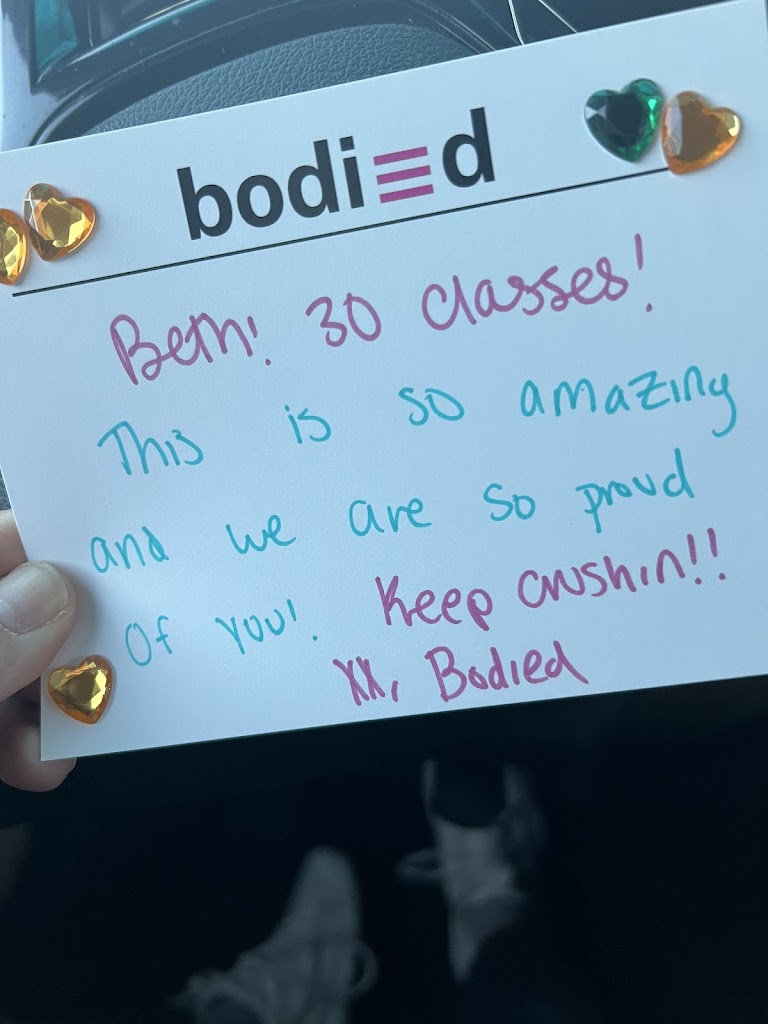 bodied
Beth! 30 classes!
This is so amazing
and we are so proud
of you! Keep crushin!!
XX, Bodied